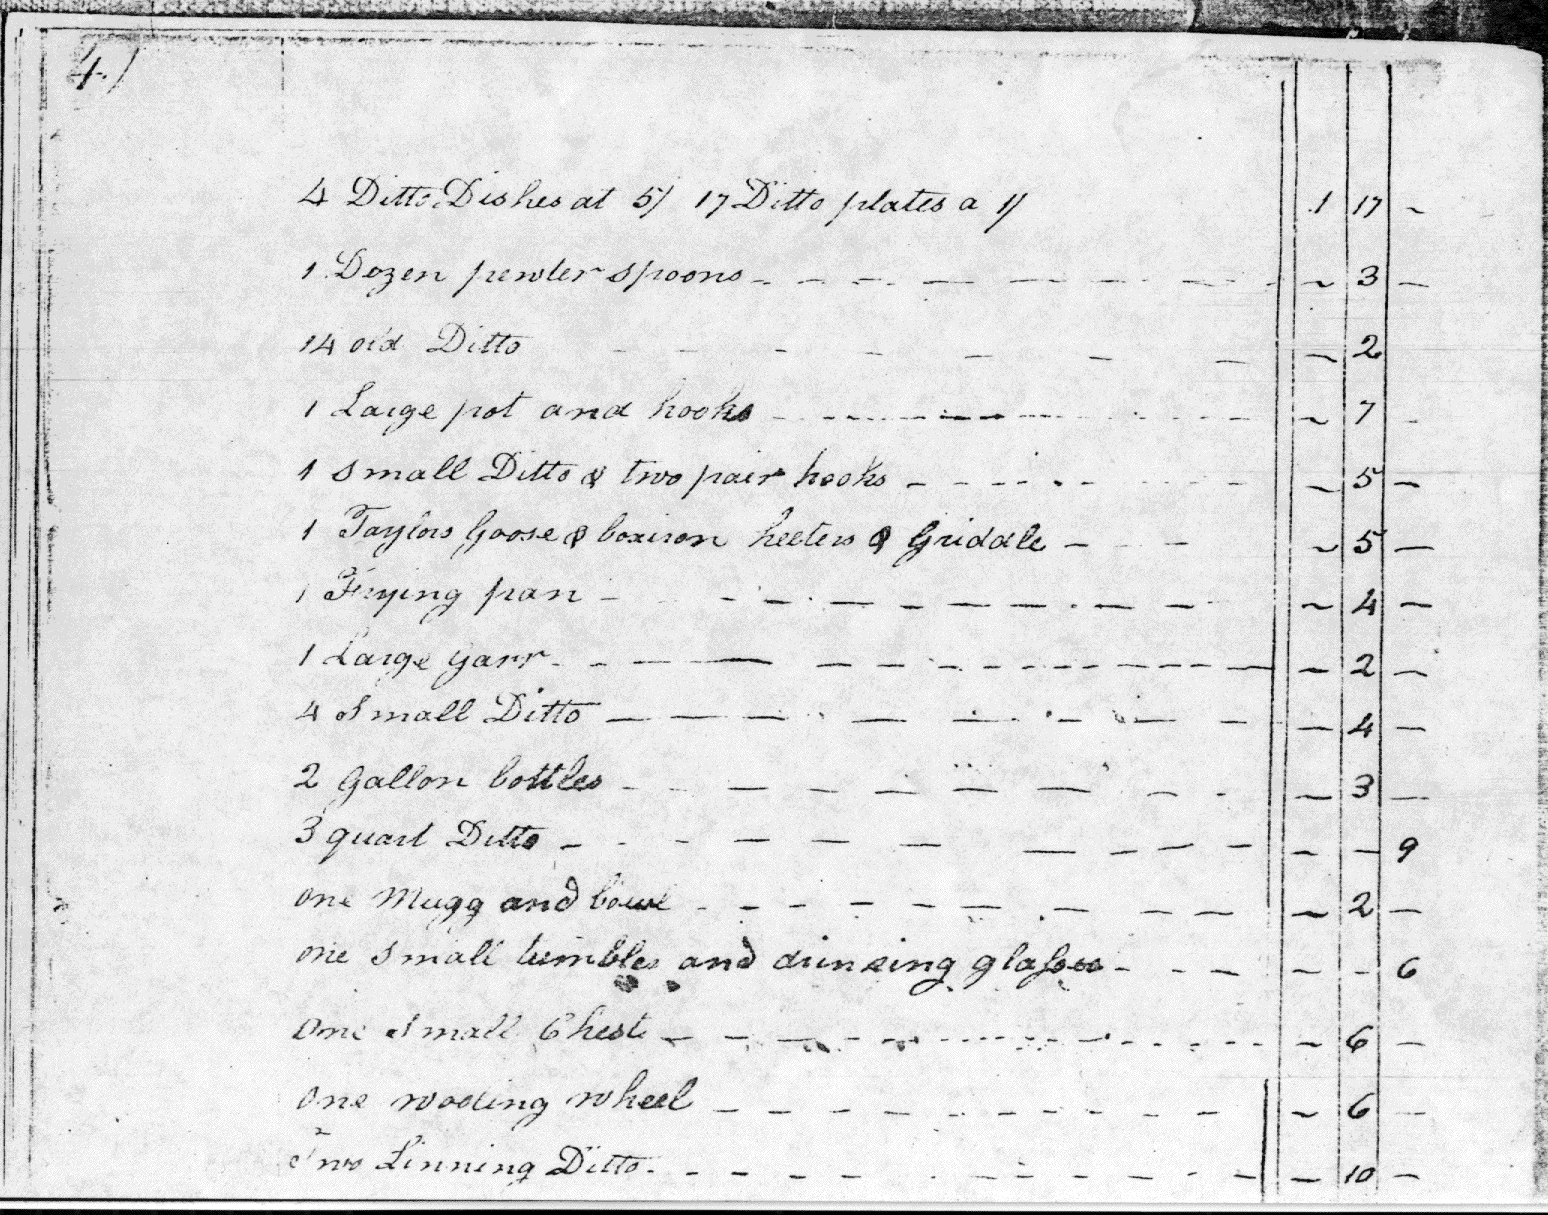 4)
4 Ditto Dishes at 5/ 17 Ditto plates a 1/ 1 17 -
1 Dozen pewter spoons - 3 -
14 old Ditto - 2
1 Large pot and hooks - 7 -
1 Small Ditto & two pair hooks - 5 -
1 Taylors Goose & boxiron heeters & Griddle - 5 -
1 Frying pan - 4 -
1 Large Jarr - 2 -
4 Small Ditto - 4 -
2 Gallon bottles - 3 -
3 quart Ditto - - 9
one Mugg and bowl - 2 -
one Small tumbler and drinking glasses - - 6
one Small Chest - 6 -
one wooling wheel - 6 -
Two Linning Ditto - 10 -